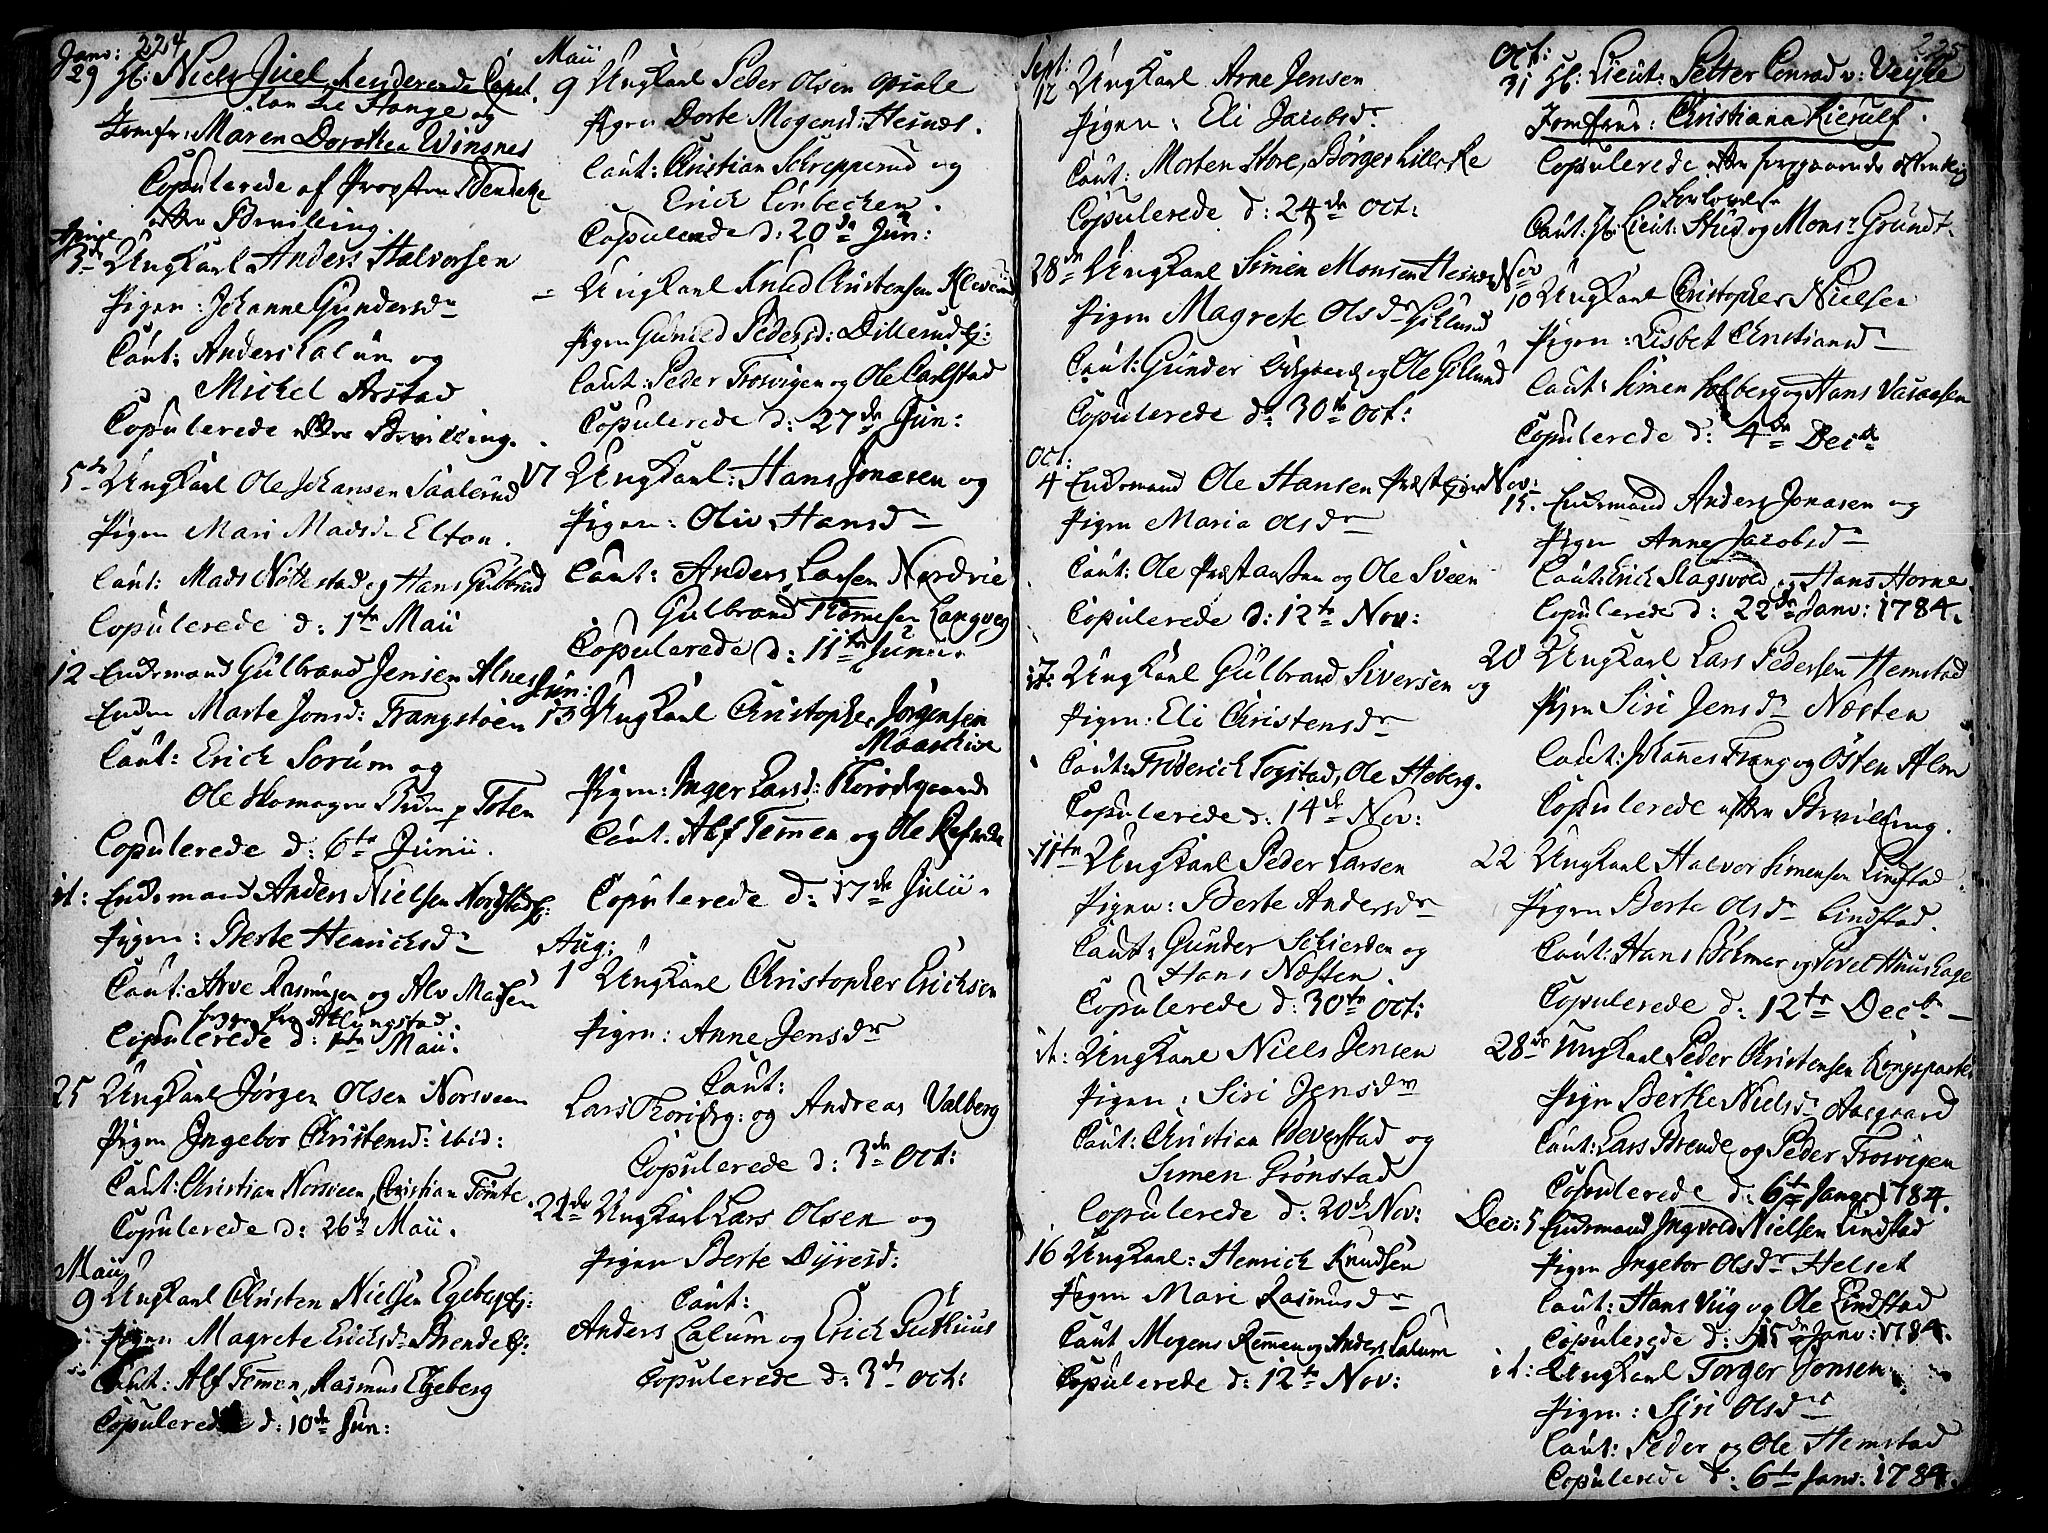 224
Janv:
29 Hr: Niels Juel residerende Capel.
Hange og
Jomfr: Maren Dorothea Winsnes
Copulerede af Provsten
efter Bevilling.
April
3de Ungkarl Anders Halvorsen
Pigen: Johanne Gundersdr
Caut: Anders Lalum og
Michel Arstad
Copulerede efter Bevilling.
5te Ungkarl Ole Johansen Saalerud
Pigen Mari Madsdr Elton.
Caut: Mads Nøthestad og Hans Gulbrud
Copulerede d: 1te Maii
12 Enkemand Gulbrand Jensen Alnes
Enken Marte Jonsd: Frangstøen
Caut: Erich Sørum og
Ole Skomager Toten
Copulerede d: 6te Junii.
it: Enkemand Anders Nielsen Nordstad Ej:
Pigen: Berte Henrichsdr
Caut: Arve Rasmusen og Alv Madsen
fra Atlungstad.
Copulerede d: Maii.
25 Ungkarl Jørgen Olsen Norsveen
Pigen Ingebor Christensd: ibid:
Caut: Christian Norsveen, Christian Tomte.
Copulerede d: 26de Maii.
Maii
9 Ungkarl Christen Nielsen Egeberg Ej:
Pigen Magrete Erichsdr Brende Ej:
Caut: Alf Temen, Rasmus Egeberg
Copulerede d: 10de Jun:
Maii
9 Ungkarl Peder Olsen Opsale
Pigen Dorte Mogensd: Heinæs.
Caut: Christian Schrepperud og
Erich Lönbecken.
Copulerede d: 20de Jun:
Ungkarl Knud Christensen Kleverud
Pigen Gunild Pedersd: Dillerud Ej:
Caut: Peder Frosvigen og Ole Carlstad
Copulerede d: 27de Jun:
17 Ungkarl: Hans Jonasen og
Pigen: Oliv Hansdr
Caut: Anders Larsen Nordvie
Gulbrand Tommesen Langveg
Copulerede d: 11te Junii.
Jun:
13 Ungkarl Christopher Jørgensen
Pigen: Inger Larsd: Thoridsgaard
Caut: Alf Temen og Ole
Copulerede d: 17de Julii.
Aug:
1 Ungkarl Christopher Erichsen
Pigen: Anne Jensdr
Caut:
Lars Thoridsg: og Andreas Valberg
Copulerede d: 3de Oct:
22de Ungkarl Lars Olsen og
Pigen Berte Dyresd:
Caut:
Anders Lalum og Erich Guthuus
Copulerede d: 3de Oct:
225
Sept:
12 Ungkarl Arne Jensen
Pigen: Eli Jacobsdr
Caut: Morten Store, Börger Lillerke
Copulerede d: 24de Oct:
28de Ungkarl Simen Monsen Heinæs
Pigen Magrete Olsdr Gillund
Caut: Gunder og Ole Gillund
Copulerede d: 30te Oct:
Oct:
4 Enkemand Ole Hansen
Pigen Maria Olsdr
Caut: Ole og Ole Sveen
Copulerede d: 12te Nov:
it: Ungkarl Gulbrand Siversen og
Pigen: Eli Christensdr
Caut: Friderich Togstad, Ole Heberg.
Copulerede d: 14de Nov:
11te Ungkarl Peder Larsen
Pigen: Berte Andersdr
Caut: Gunder Schierden og
Hans Næsten
Copulerede d: 30te Oct:
it: Ungkarl Niels Jensen
Pigen: Siri Jensdr
Caut: Christian Deverstad og
Simen Grönstad
Copulerede d: 20de Nov:
16 Ungkarl: Henrich Knudsen
Pigen Mari Rasmusdr
Caut Mogens Remen og Anders Lalum
Copulerede d: 12te Nov:
Oct:
31 Hr: Lieut: Petter Conrad v: Veyhe
Jomfrue: Christiana Kierulf.
Copulerede efter foregaaende offentlig
Forlovelse
Caut: Hr Lieut: Stud og Monsr Grundt.
Nov
10 Ungkarl Christopher Nielsen
Pigen: Lisbet Christiansdr
Caut: Simen Solberg og Hans Vasaasen
Copulerede d: 4de Decbr
Nov:
15. Enkemand Anders Jonasen og
Pigen Anne Jacobsdr
Caut: Erich Slagsvold og Hans Horne
Copulerede d: 22de Janv: 1784.
20 Ungkarl Lars Pedersen Hemstad
Pigen Siri Jensdr Næsten
Caut: Johannes Frang og Østen Alm
Copulerede efter Bevilling.
22 Ungkarl Halvor Simensen Lindstad.
Pigen Berte Olsdr Lindstad.
Caut: Hans Bölmar og Povel Huushage
Copulerede d: 12te Decbr
28de Ungkarl Peder Christensen Kongsparten
Pigen Berthe Nielsdr Aasgaard
Caut: Lars Brende og Peder Frosvigen
Copulerede d: 6te Janv: 1784.
Dec: 5 Enkemand Ingvold Nielsen Lindstad
Pigen Ingebor Olsdr Helset
Caut: Hans Viig og Ole Lindstad
Copulerede d: 15de Janv: 1784.
it: Ungkarl Torger Jonsen
Pigen: Siri Olsdr
Caut: Peder og Ole Hemstad
Copulerede d: 6te Janv: 1784.